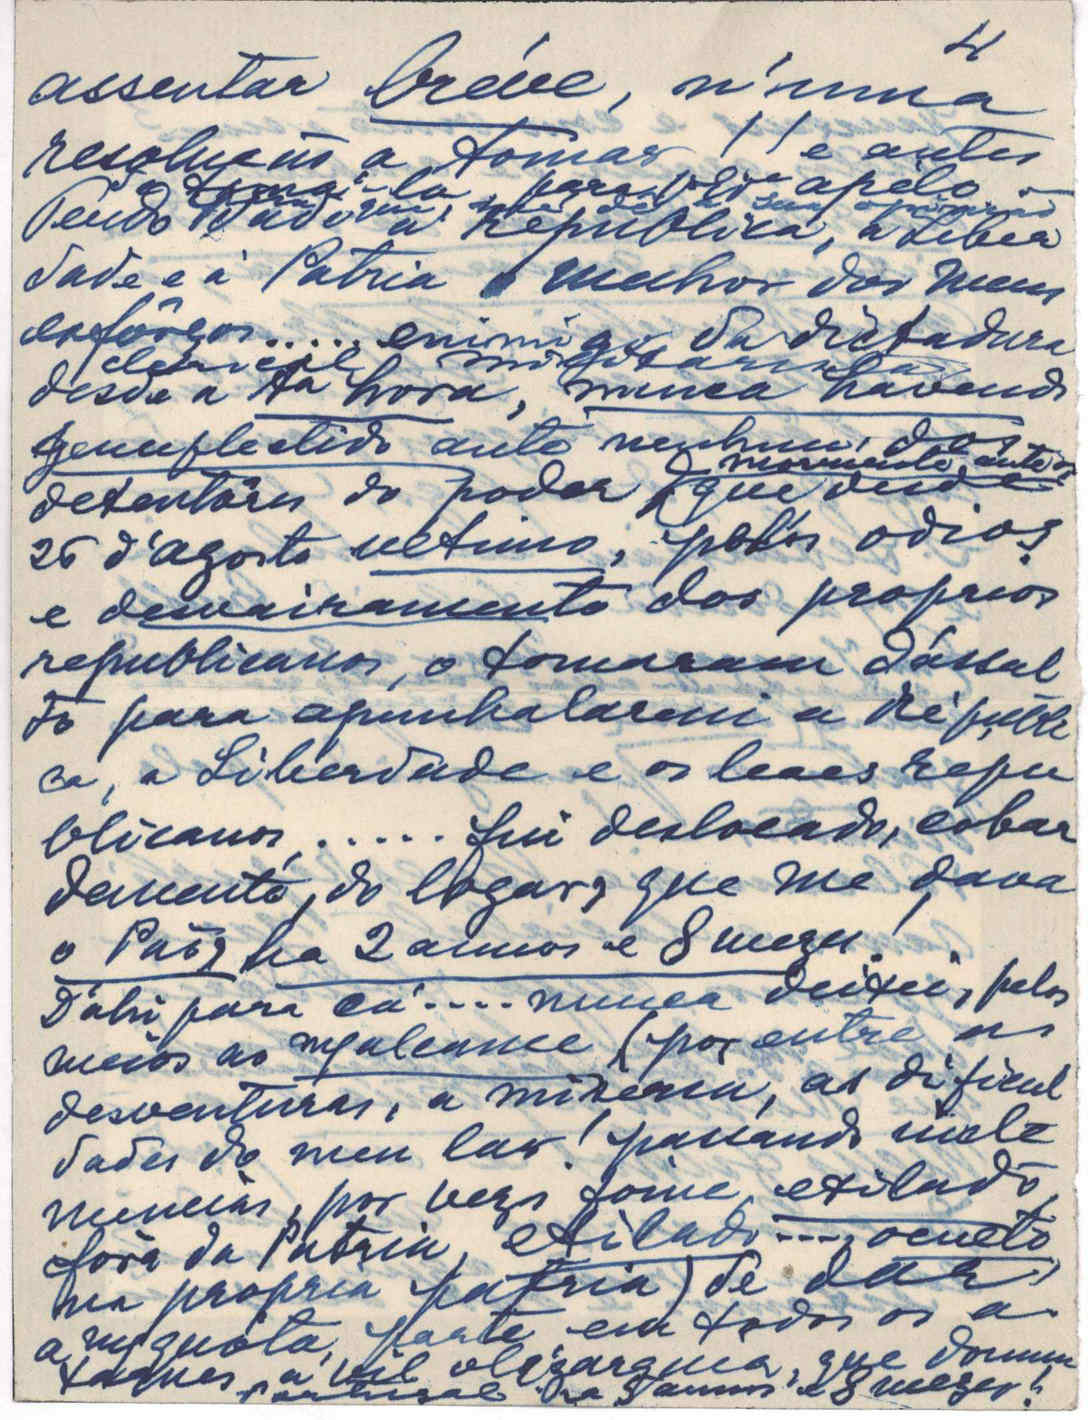 4
assentar bréve, n'uma
resolução a tomar!! e antes
de toma-la, para si apélo.
Tendo dado á Republica, á Liber
dade e á Patria o melhor dos meus
esforços..... enimigo da dictadura
clerical militarista
desde a 1ª hora, nunca havendo
genuflectido ante nenhum dos
detentôres do poder, mórmente ante os que desde
26 d'agosto ultimo, pelos odios
e desvairamento dos proprios
republicanos, o tomaram d'assal
to para apunhalarem a Républi
ca, a Liberdade e os leaes repu
blicanos,..... fui deslocado, cobar
demente, do logar, que me dava
o Pão, ha 2 annos e 8 mezes!
D'ahi para cá.... nunca deixei, pelos
meios ao m/alcance (por entre as
desventuras, a miseria, as dificul
dades do meu lar! passando incle
mencias, por vezes fome, exilado,
fóra da Patria, exilado...., oculto
na propria patria) de dar,
a m/quóta parte em todos os a
taques a vil oligarquia, que domina
Portugal ha 5 annos e 8 mezes!